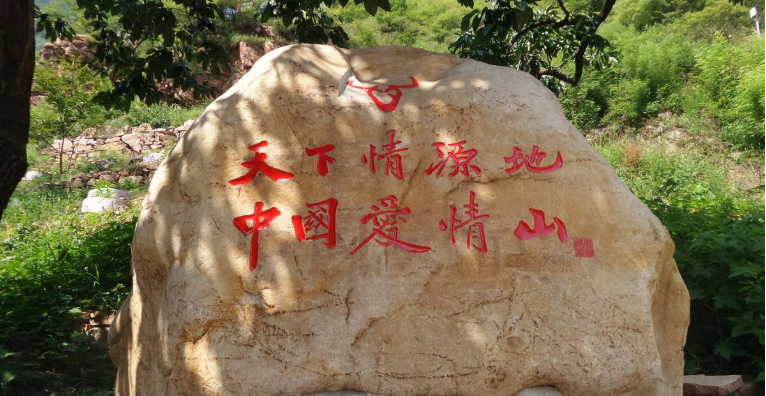 天下情源地
中国爱情山